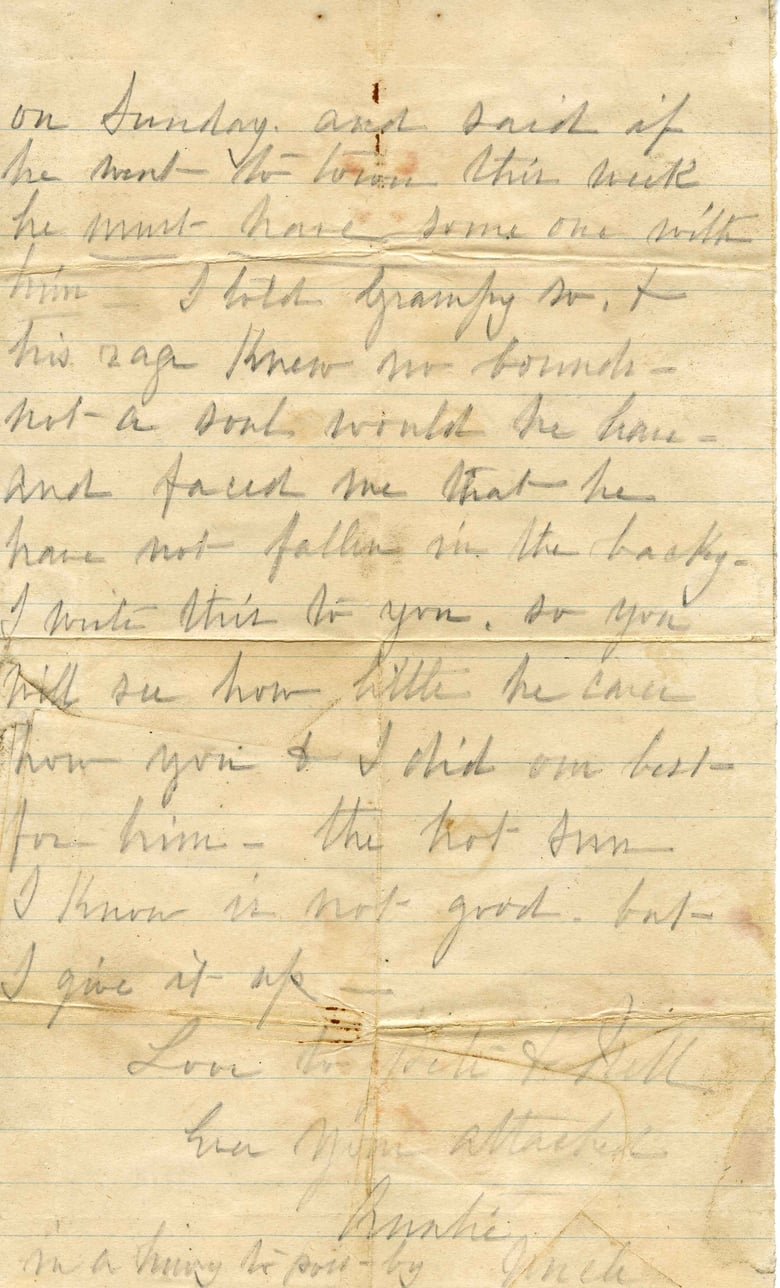 on Sunday. and said if
he went to town this week
he must have some one with
him - I told Grampy so, &
his rage knew no bounds -
not a soul would he have -
and faced me that he
have not fallen in the backy -
I write this to you. so you
will see how little he cares
how you & I did our best
for him - the hot sun
I know is not good. but
I give it up -
Love to & Nell
Ever your attached
Auntie
in a hurry to post by